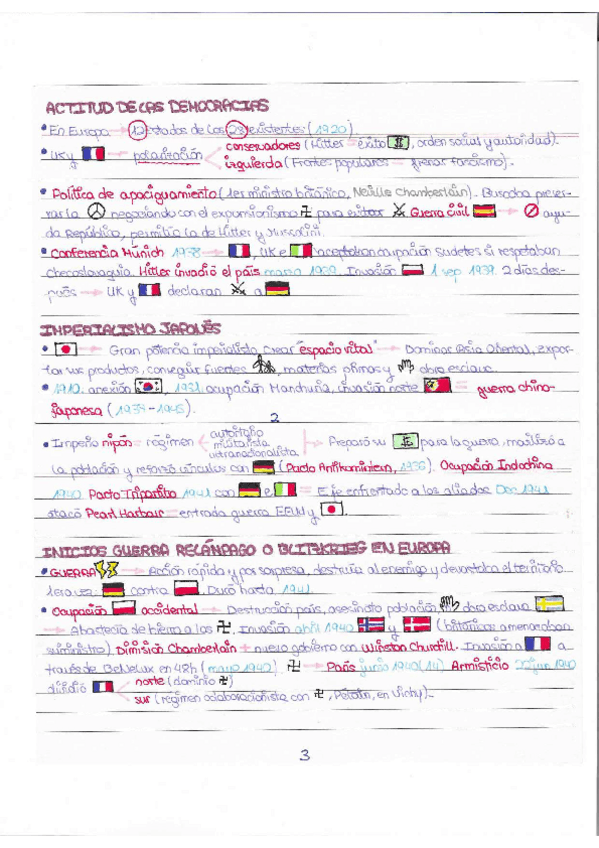 ACTITUD DE LAS DEMOCRACIAS
• En Europa → 12 estados de los 28 existentes (1920).
• UK y → polarización conservadores (Hitler = éxito, orden social y autoridad).
izquierda (Frentes populares → frenar fascismo).
• Política de apaciguamiento (1er ministro británico, Neville Chamberlain). Buscaba preser-
var la negociando con el expansionismo para evitar Guerra Civil → ayu-
da República, permitía la de Hitler y Mussolini.
• Conferencia Múnich 1938 → , UK e aceptaban ocupación Sudetes si respetaban
Checoslovaquia. Hitler invadió el país marzo 1939. Invasión 1 sep 1939. 2 días des-
pués → UK y declaran a
IMPERIALISMO JAPONÉS
• → Gran potencia imperialista. Crear "espacio vital" → Dominar Asia Oriental, expor-
tar sus productos, conseguir fuentes, materias primas y obra esclava.
• 1910. anexión, 1931. ocupación Manchuria, invasión norte = guerra chino-
japonesa (1937-1945).
2
• Imperio nipón = régimen autoritario militarista ultranacionalista → Preparó su para la guerra, movilizó a
la población y reforzó vínculos con (Pacto Antikomintern, 1936). Ocupación Indochina
1940 Pacto Tripartito 1941 con e = Eje enfrentado a los aliados Dec 1941
atacó Pearl Harbour = entrada guerra EEUU y .
INICIOS GUERRA RELÁMPAGO O BLITZKRIEG EN EUROPA
• GUERRA → Acción rápida y por sorpresa, destruía al enemigo y devastaba el territorio
1era vez contra . Duró hasta 1941.
• Ocupación accidental → Destrucción país, asesinato población, obra esclava
→ Abastecía de hierro a los . Invasión abril 1940 y (británicos amenazaban
suministro). Dimisión Chamberlain + nuevo gobierno con Winston Churchill. Invasión a a
través de BeNeLux en 48h (mayo 1940). → París junio 1940 (14) Armisticio jun 1940
dividió norte (dominio )
sur (régimen colaboracionista con , Petain, en Vichy).
3